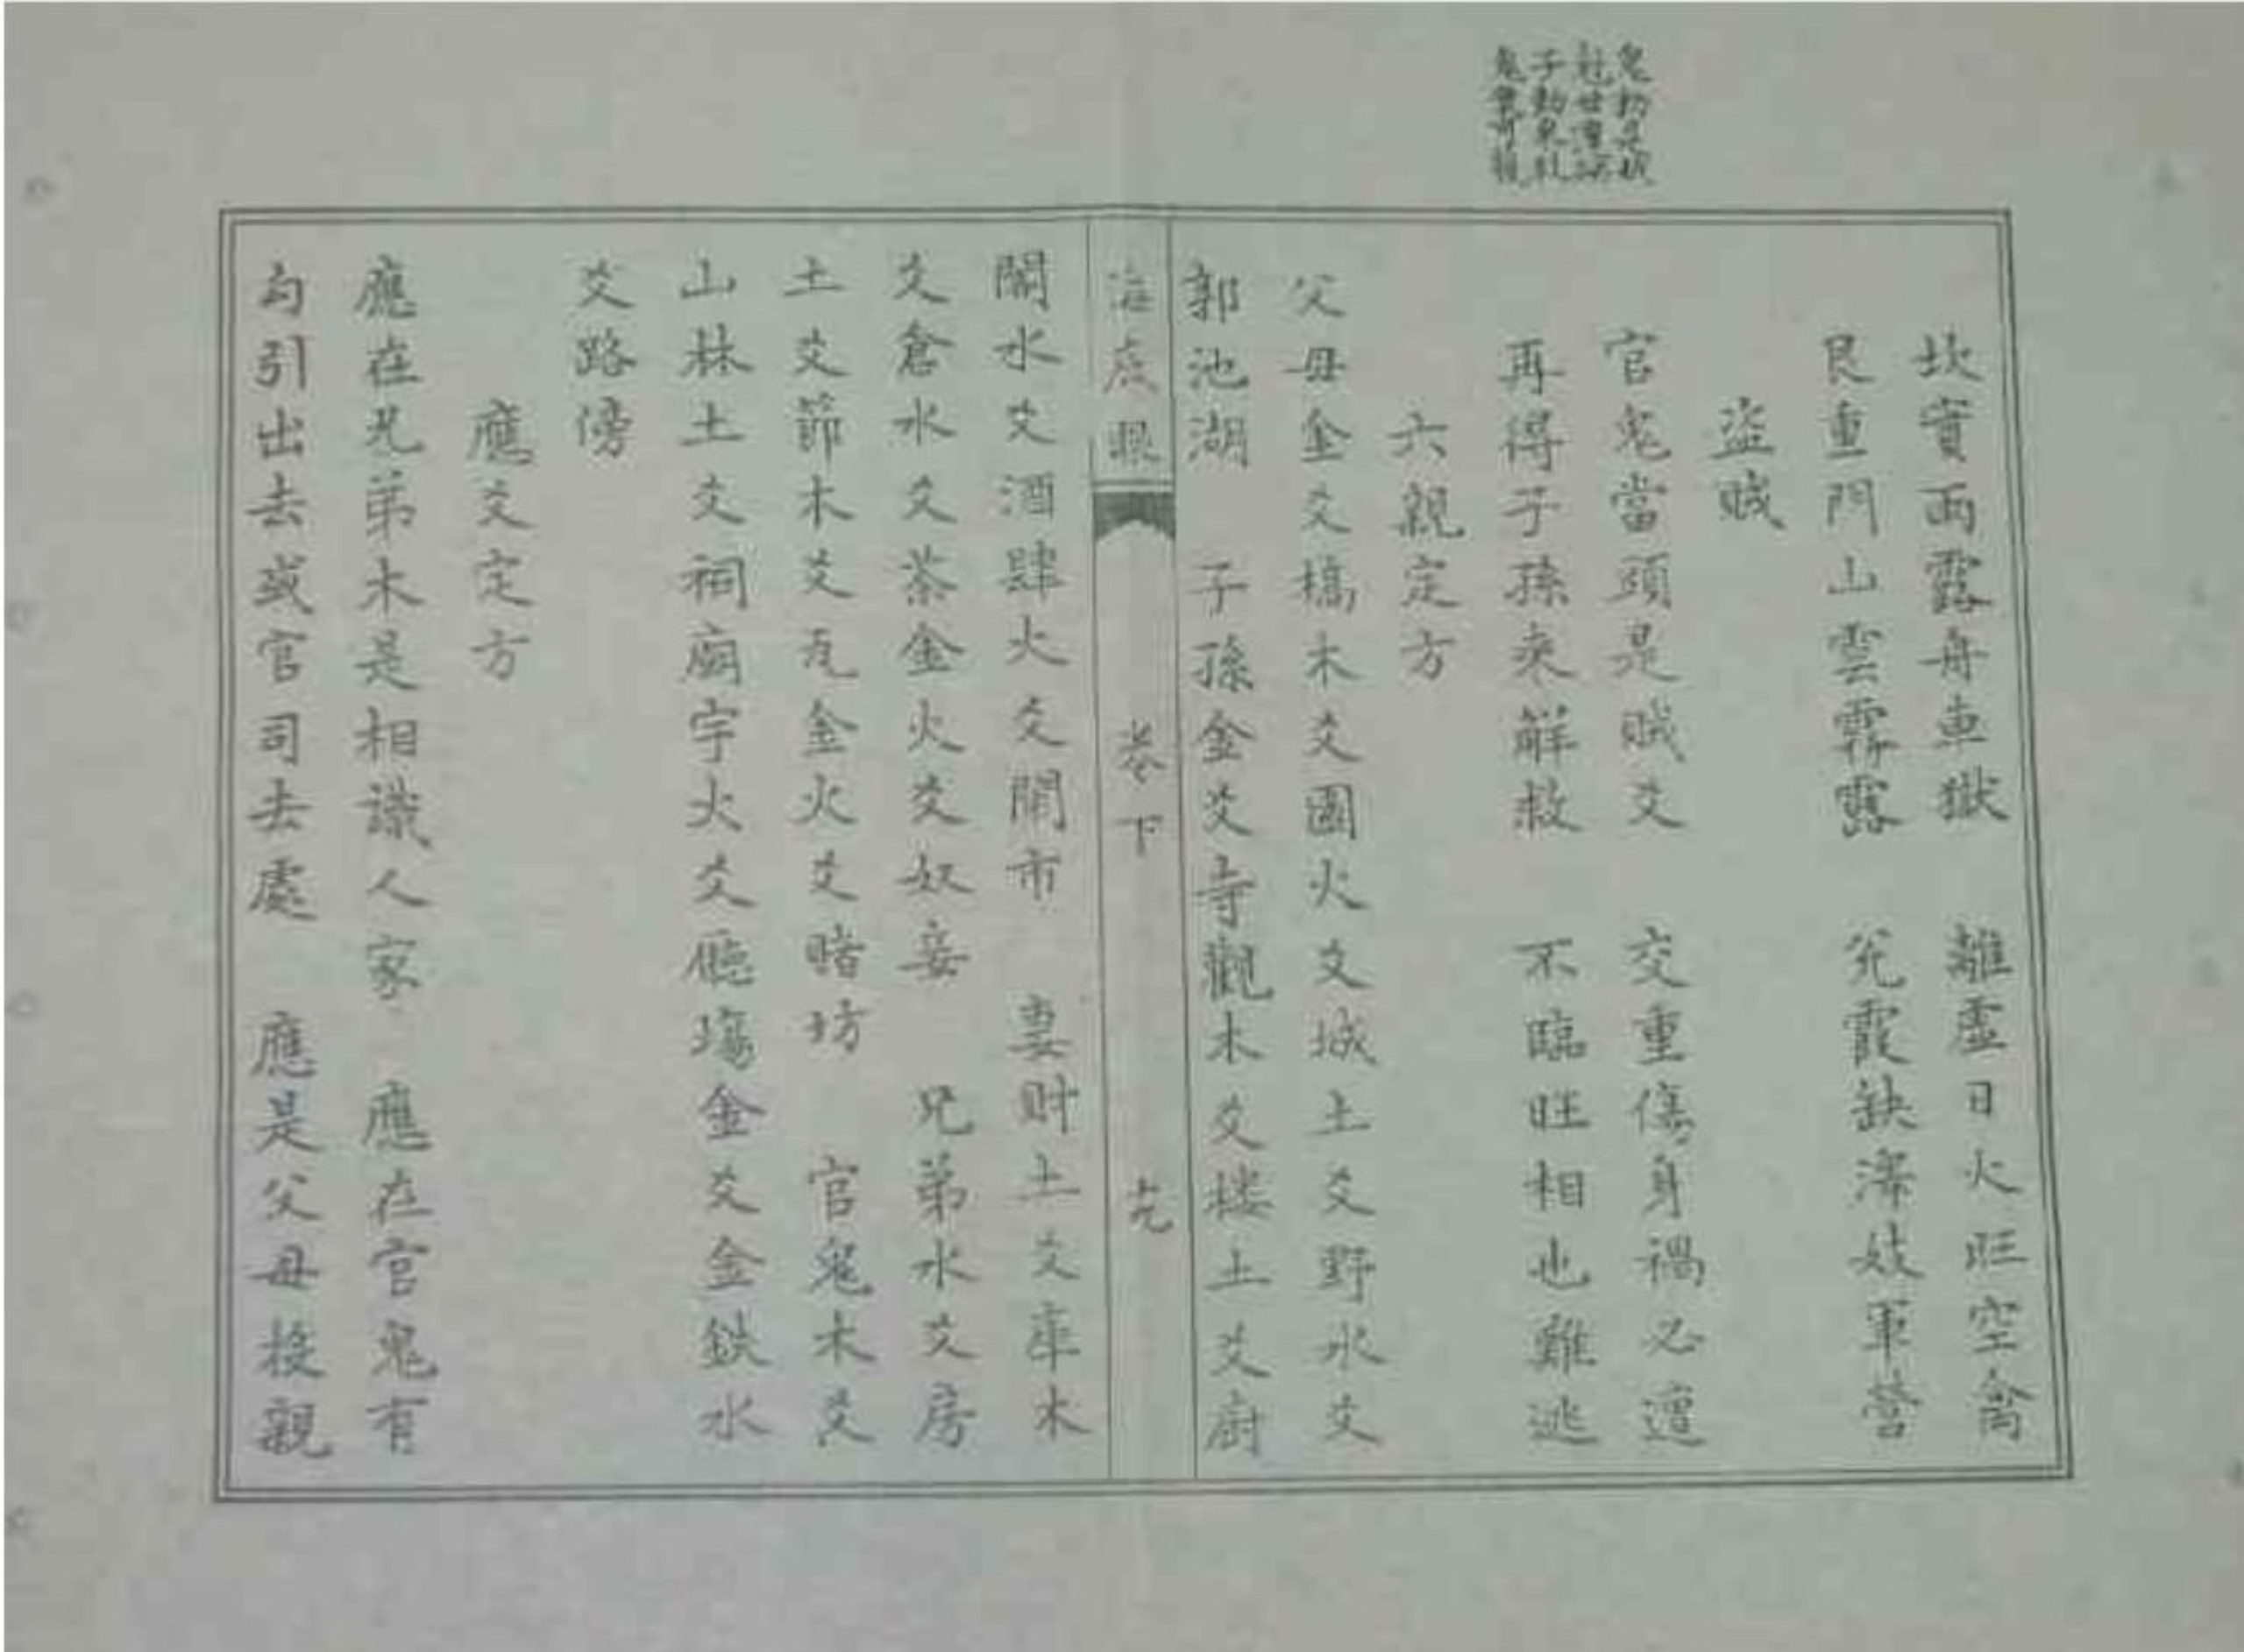 鬼動是賊
尅世
子動
鬼
坎實雨露舟車獄　離虛日火旺空禽
艮重門山雲霧露　兌霞缺澤妓軍營
盜賊
官鬼當頭是賊爻　交重傷身禍必遭
再得子孫來解救　不臨旺相也難逃
六親定方
父母金爻橋木爻園火爻城土爻野水爻
郭池湖　子孫金爻寺觀木爻楼土爻廚
海底眼　卷下　十九
閣水爻酒肆火爻鬧市　妻财土爻庫木
爻倉水爻茶金火爻奴妾　兄弟水爻房
土爻節木爻瓦金火爻賭坊　官鬼木爻
山林土爻祠廟宇火爻廳塲金爻金鉄水
爻路傍
應爻定方
應在兄弟木是相識人家　應在官鬼有
勾引出去或官司去處　應是父母投親